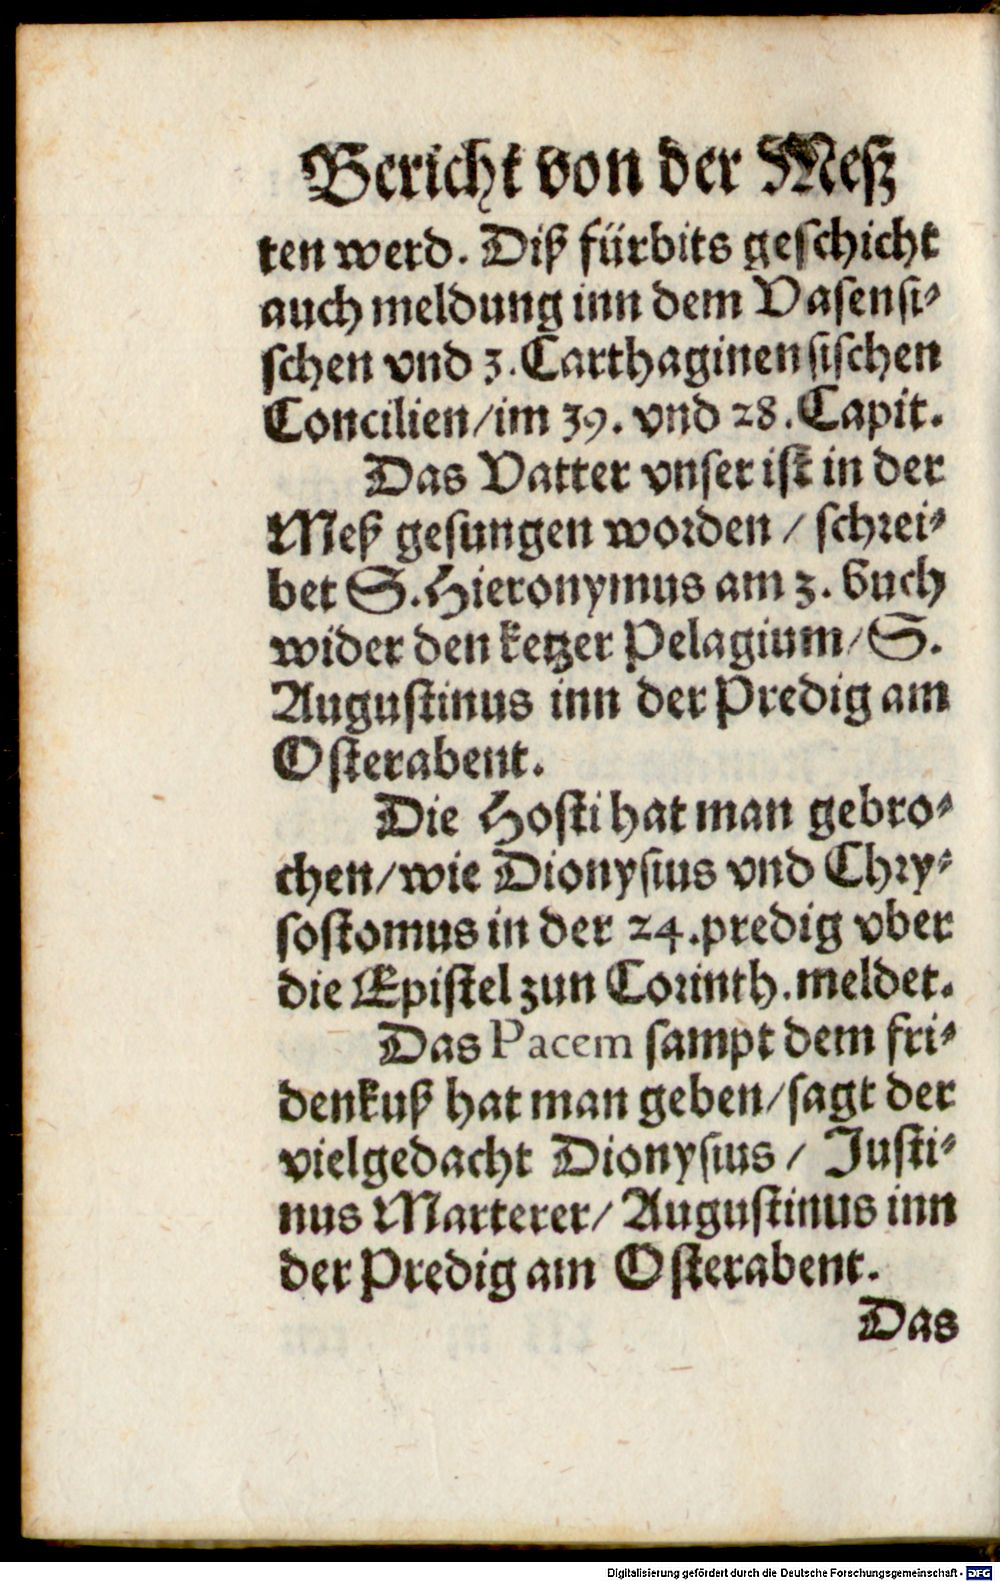 Bericht von der Meß
ten werd. Diß fürbits geschicht
auch meldung inn dem Vasensi⸗
schen vnd 3. Carthaginensischen
Concilien/im 39. vnd 28. Capit.
Das Vatter vnser ist in der
Meß gesungen worden / schrei⸗
bet S. Hieronymus am 3. buch
wider den ketzer Pelagium/ S.
Augustinus inn der Predig am
Osterabent.
Die Hosti hat man gebro⸗
chen/wie Dionysius vnd Chry⸗
sostomus in der 24. predig vber
die Epistel zun Corinth. meldet.
Das Pacem sampt dem fri⸗
denkuß hat man geben/sagt der
vielgedacht Dionysius / Justi⸗
nus Marterer/ Augustinus inn
der Predig am Osterabent.
Das
Digitalisierung gefördert durch die Deutsche Forschungsgemeinschaft - DFG